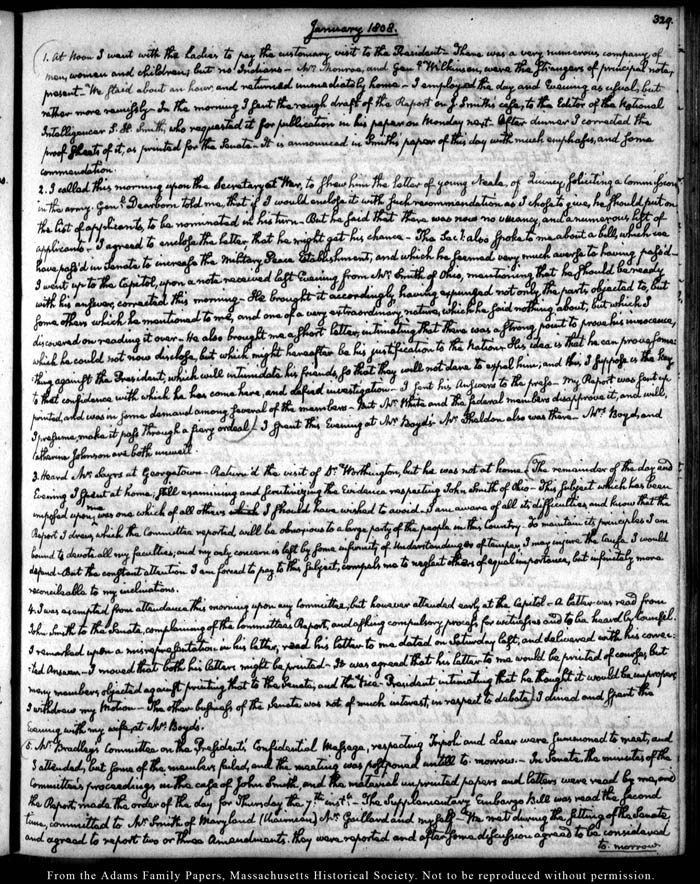 329.
January 1808.
1. At Noon I went with the Ladies to pay the customary visit to the President - There was a very numerous company, of
men, women and children; but no Indians - Mr. Monroe, and Genl. Wilkinson, were the Strangers of principal note,
present - We staid about an hour, and returned immediately home. - I employed the day and Evening as usual; but
rather more remissly - In the morning I sent the rough draft of the Report on J. Smith's case, to the Editor of the National
Intelligencer S. H. Smith, who requested it for publication in his paper on Monday next. After dinner I corrected the
proof sheets of it, as printed for the Senate. It is announced in Smith's paper of this day with much emphasis, and some
commendation.
2. I called this morning upon the Secretary at War, to shew him the letter of young Neale, of Quincy soliciting a Commission
in the army. Genl. Dearborn told me, that if I would enclose it with such recommendation as I chose to give, he should put on
the list of applicants, to be nominated in his turn - But he said that there was now no vacancy, and a numerous list of
applicants - I agreed to enclose the letter, that he might get his chance - The Secy. also spoke to me about a bill, which we
have pass'd in Senate to increase the Military Peace Establishment, and which he seemed very much averse to having pass'd -
I went up to the Capitol, upon a note received last Evening from Mr. Smith of Ohio, mentioning that he should be ready
with his answer, corrected this morning - He brought it accordingly, having expunged not only the parts objected to, but
some others which he mentioned to me, and one of a very extraordinary nature, which he said nothing about, but which I
discovered on reading it over - He also brought me a short letter, intimating that there was a strong point to prove his innocence,
which he could not now disclose, but which might hereafter be his justification to the Nation. His idea is that he can prove some
thing against the President, which will intimidate his friends, so that they will not dare to expel him; and this, I suppose is the key
to that confidence with which he has come here, and defied investigation - I sent his Answers to the press - My Report was sent up
printed, and was in some demand among several of the members - But Mr. White and the federal members disapprove it, and will,
I presume, make it pass through a fiery ordeal. I spent this Evening at Mr. Boyd's. Mr. Sheldon also was there - Mrs. Boyd, and
Catherine Johnson are both unwell
3. Heard Mr. Sayrs at Georgetown - Return'd the visit of Dr. Worthington, but he was not at home. The remainder of the day and
Evening I spent at home, still examining and scrutinizing the Evidence respecting John Smith of Ohio - This subject which has been
imposed upon me, was one which of all others I should have wished to avoid. I am aware of all its difficulties, and know that the
Report I drew, which the Committee reported will be obnoxious to a large party of the people in this Country. To maintain its principles I am
bound to devote all my faculties; and my only concern is lest by some infirmity of Understanding or of temper I may injure the cause I would
defend - But the constant attention I am forced to pay to this subject, compels me to neglect others of equal importance, but infinitely more
reconcileable to my inclinations.
4. I was exempted from attendance this morning upon any Committee; but however attended early at the Capitol - A letter was read from
John Smith to the Senate, complaining of the committee's Report, and asking compulsory process for witnesses and to be heard by Counsel.
I remarked upon a misrepresentation in his letter, read his letter to me dated on Saturday last, and delivered with his correc-
ted Answer - I moved that both his letters might be printed - It was agreed that his letter to me would be printed of course; but
many members objected against printing that to the Senate, and the Vice-President intimating that he thought it would be improper,
I withdrew my Motion - The other business of the Senate was not of much interest, in respect to debate. I dined and spent the
Evening with my wife, at Mr. Boyd's.
5. Mr. Bradley's Committee on the President's Confidential Message, respecting Tripoli and were summoned to meet; and
I attended, but some of the members failed, and the meeting was postponed until to-morrow. - In Senate the minutes of the
Committee's proceedings in the case of John Smith, and the material unprinted papers and letters were read by me, and
the Report, made the order of the day for Thursday the 7th. inst. - The Supplementary Embargo Bill was read the second
time, committed to Mr. Smith of Maryland (Chairman) Mr. Gaillard and myself - We met during the sitting of the Senate,
and agreed to report two or three Amendments. they were reported and after some discussion agreed to be considered
to-morrow.
From the Adams Family Papers, Massachusetts Historical Society. Not to be reproduced without permission.